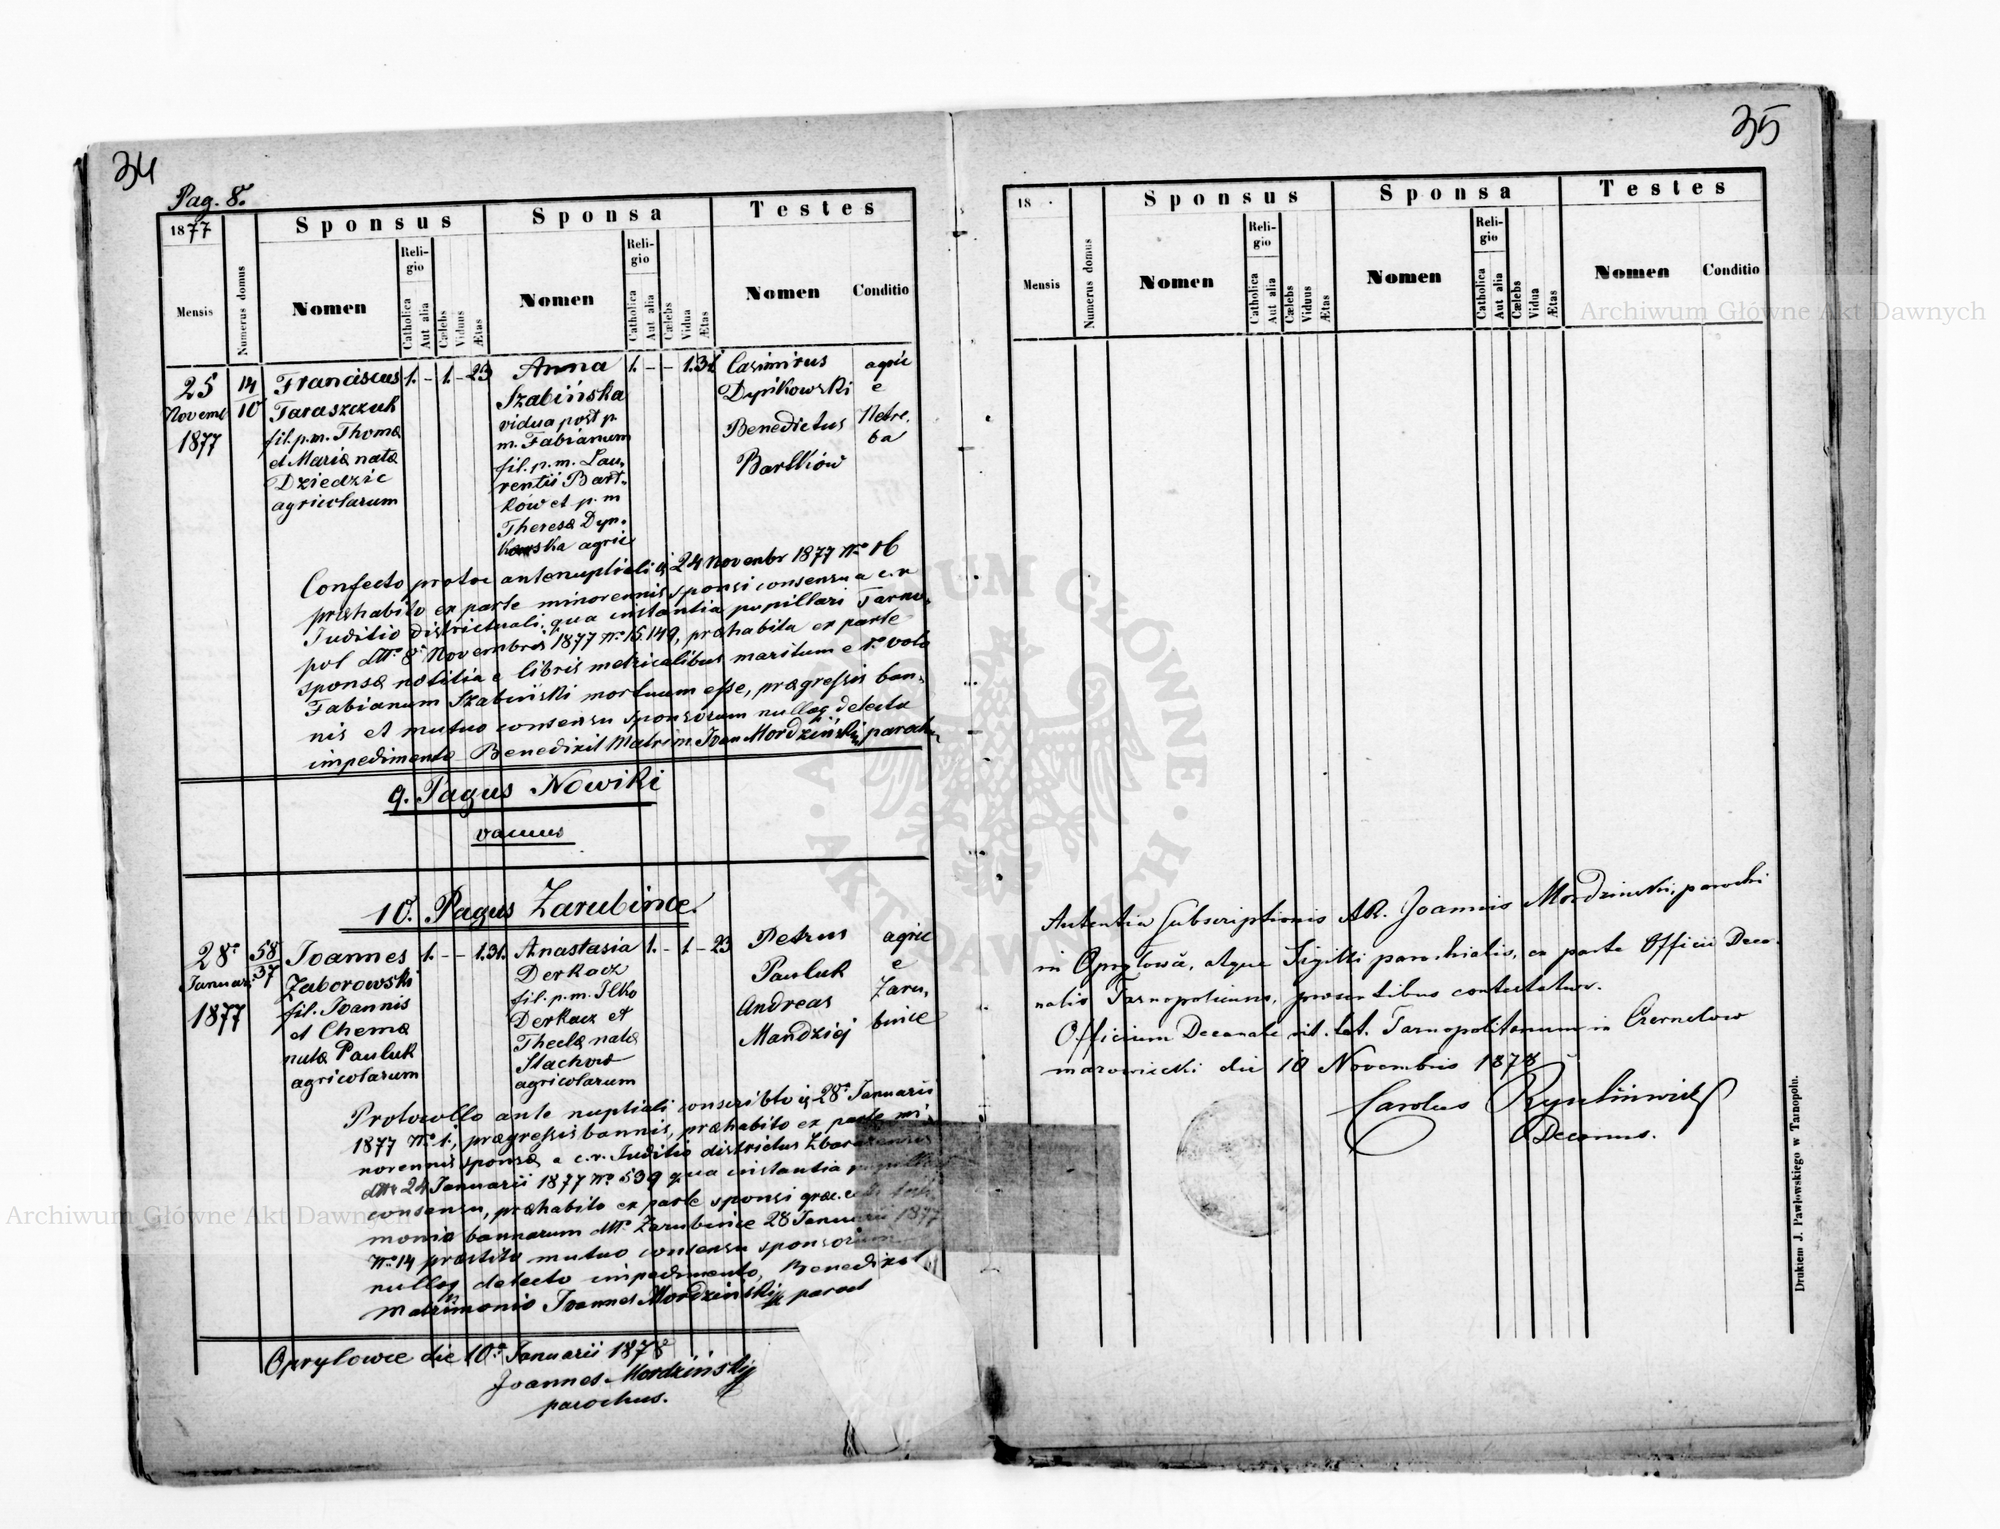 34
Pag. 8.
1877
Sponsus
Sponsa
Testes
Mensis
Numerus domus
Nomen
Religio
Catholica
Aut alia
Cælebs
Viduus
Ætas
Nomen
Religio
Catholica
Aut alia
Cælebs
Vidua
Ætas
Nomen
Conditio
25
Novemb
1877
14
10
Franciscus
Taraszczuk
fil. p.m. Thomæ
et Mariæ natæ
Dziedzic
agricolarum
1. - 1. - 23
Anna
Szabińska
vidua post p.
m. Fabianum
fil. p. m. Lau-
rentii Bart-
ków et p. m
Theresæ Dyn-
kowska agric
1. - - 1. 31
Casimirus
Dynkowski
Benedictus
Bartków
agric
e
Netre-
ba
Confecto protoc antenuptiali 24 Novembr 1877 No 16
præhabito ex parte minorennis sponsi consensu a c. r
Juditio districtuali, qua instantia pupillari Tarno-
pol dtto 8 Novembris 1877 No 15.149, præhabita ex parte
sponsæ notitia e libris metricalibus maritum e 1o voto
Fabianum Szabiński mortuum esse, prægressis ban-
nis et mutuo consensu sponsorum nulloq detecto
impedimento Benedixit Matrim. Joan Mordziński paroch
9. Pagus Nowiki
vacuus
10. Pagus Zarubince
28a
Januar.
1877
58
37
Joannes
Zaborowski
fil. Joannis
et Chemæ
natæ Pauluk
agricolarum
1. - - 1. 31.
Anastasia
Derkacz
fil. p. m. Ilko
Derkacz et
Theclæ natæ
Stachow
agricolarum
1. - 1 - 23
Petrus
Pauluk
Andreas
Mandziej
agric
e
Zaru-
bince
Protocollo ante nuptiali conscribto 28a Januarii
1877 No 1., prægressis bannis, præhabito ex parte mi-
norennis sponsæ a c. r. Juditio districtus Zbarazensis
dtto 24 Januarii 1877 No 539 qua instantia pupillari
consensu, præhabito ex parte sponsi græc. c. testi-
monio bannorum dtto Zarubince 28 Januarii 1877
No 14 præstito mutuo consensu sponsorum
nulloq detecto impedimento, Benedixit
matrimonio Joannes Mordziński paroch
Opryłowce die 10a Januarii 1878
Joannes Mordziński
parochus.
35
18
Sponsus
Sponsa
Testes
Mensis
Numerus domus
Nomen
Religio
Catholica
Aut alia
Cælebs
Viduus
Ætas
Nomen
Religio
Catholica
Aut alia
Cælebs
Vidua
Ætas
Nomen
Conditio
Autentia Subscriptionis AR. Joannis Mordzinski, parochi
in Opryłowce, atque Sigilli parochialis, ex parte Officii Deca-
nalis Tarnopoliensis, præsentibus contestatur.
Officium Decanale rit. lat. Tarnopolitanum in Czernelow
mazowiecki die 10 Novembris 1878
Carolus
Decanus.
Drukiem J. Pawłowskiego w Tarnopolu.
Archiwum Główne Akt Dawnych
Archiwum Główne Akt Dawnych
ARCHIWUM GŁÓWNE AKT DAWNYCH